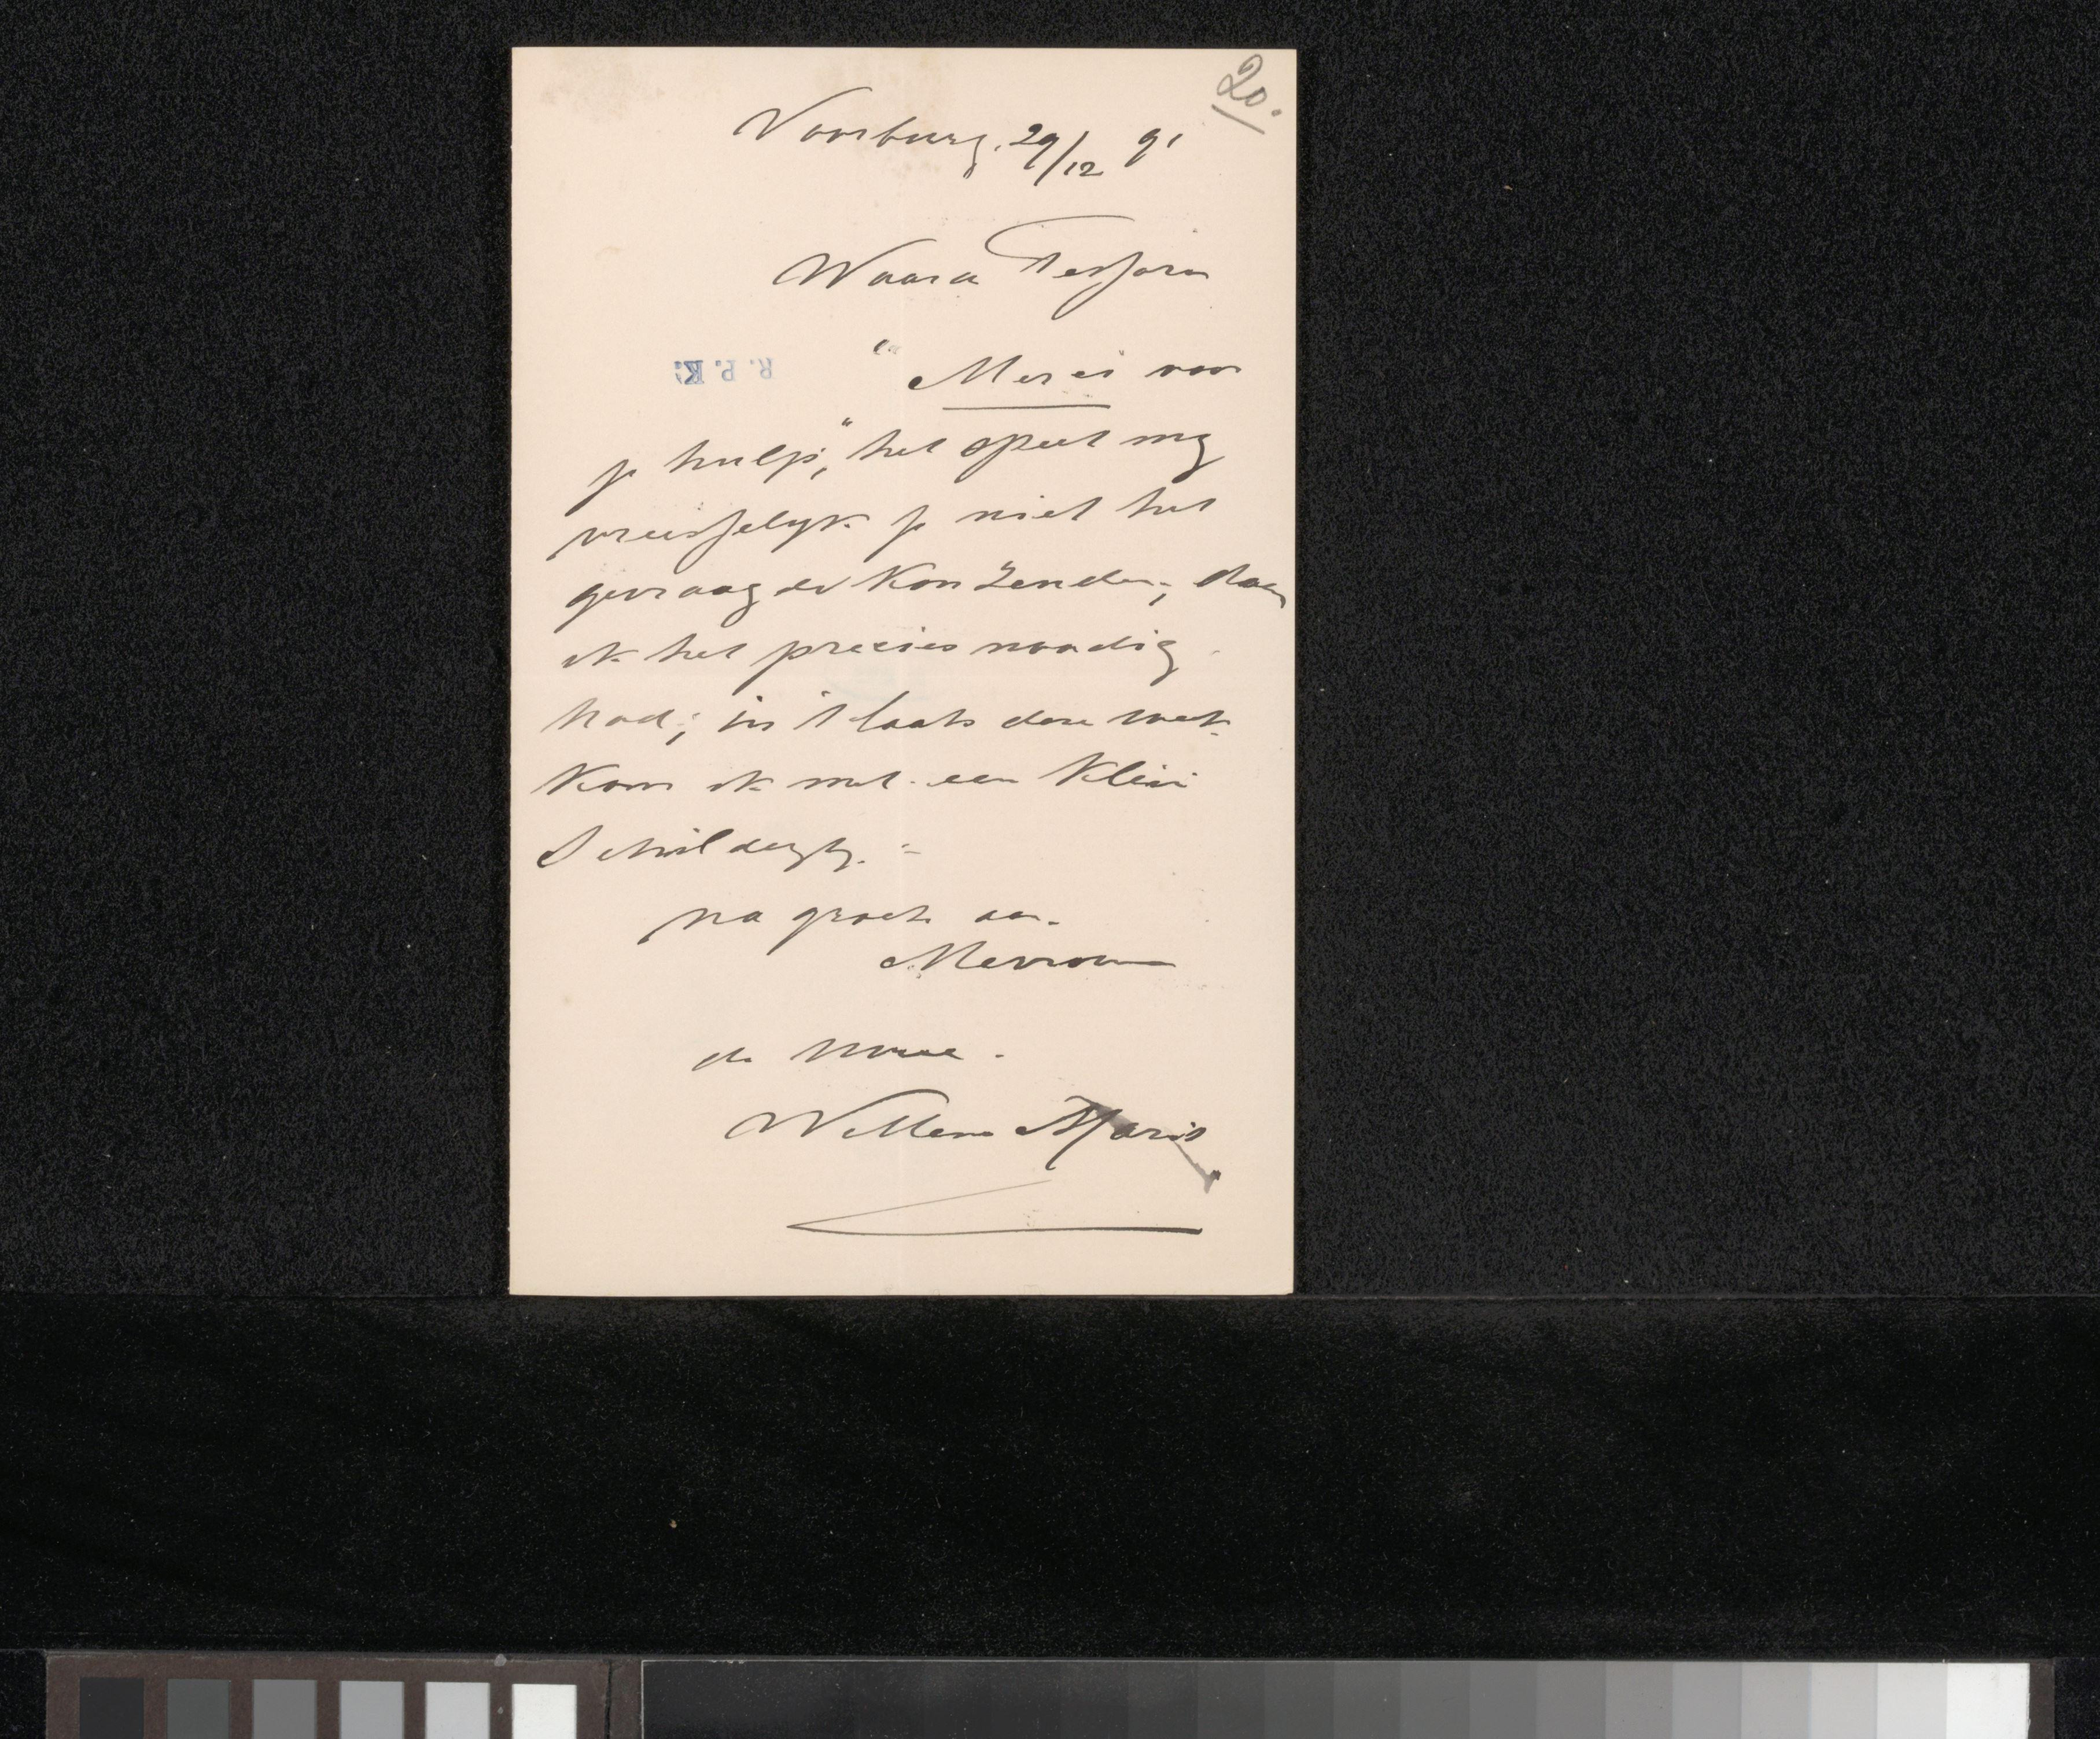 20.
Voorburg, 29/12 91
Waarde Tersteeg
"Merci voor
R.P.K.
je hulp", het speet mij
vreesselijk je niet het
gevraagde kon zenden, daar
ik het precies noodig
had; in plaats dese week
kom ik met een klein
Schilderij.
na groete aan
Mevrouw
de Uwe
Willem Maris